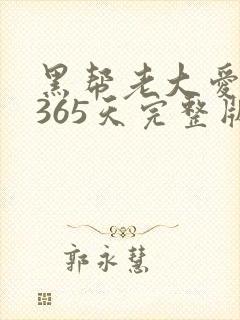 黑帮老大爱
365天完整版
郭永慧